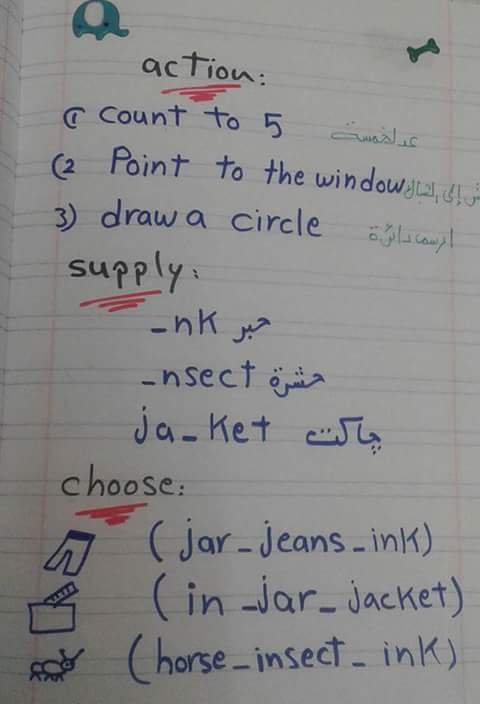 action:
(1 Count to 5 عد لخمسة
(2 Point to the window
3) draw a circle ارسم دائرة
supply:
_nk حبر
_nsect حشرة
ja_ket چاكت
choose:
(jar_jeans_ink)
(in_jar_jacket)
(horse_insect_ink)